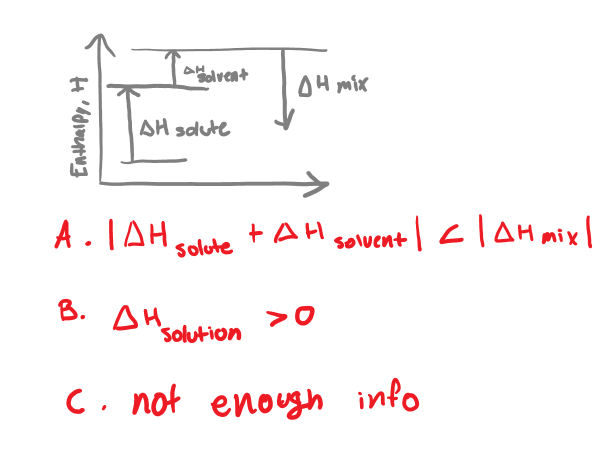 Enthalpy, H
ΔH solvent
ΔH mix
ΔH solute
A. |ΔH solute + ΔH solvent| < |ΔH mix|
B. ΔH solution > 0
C. not enough info